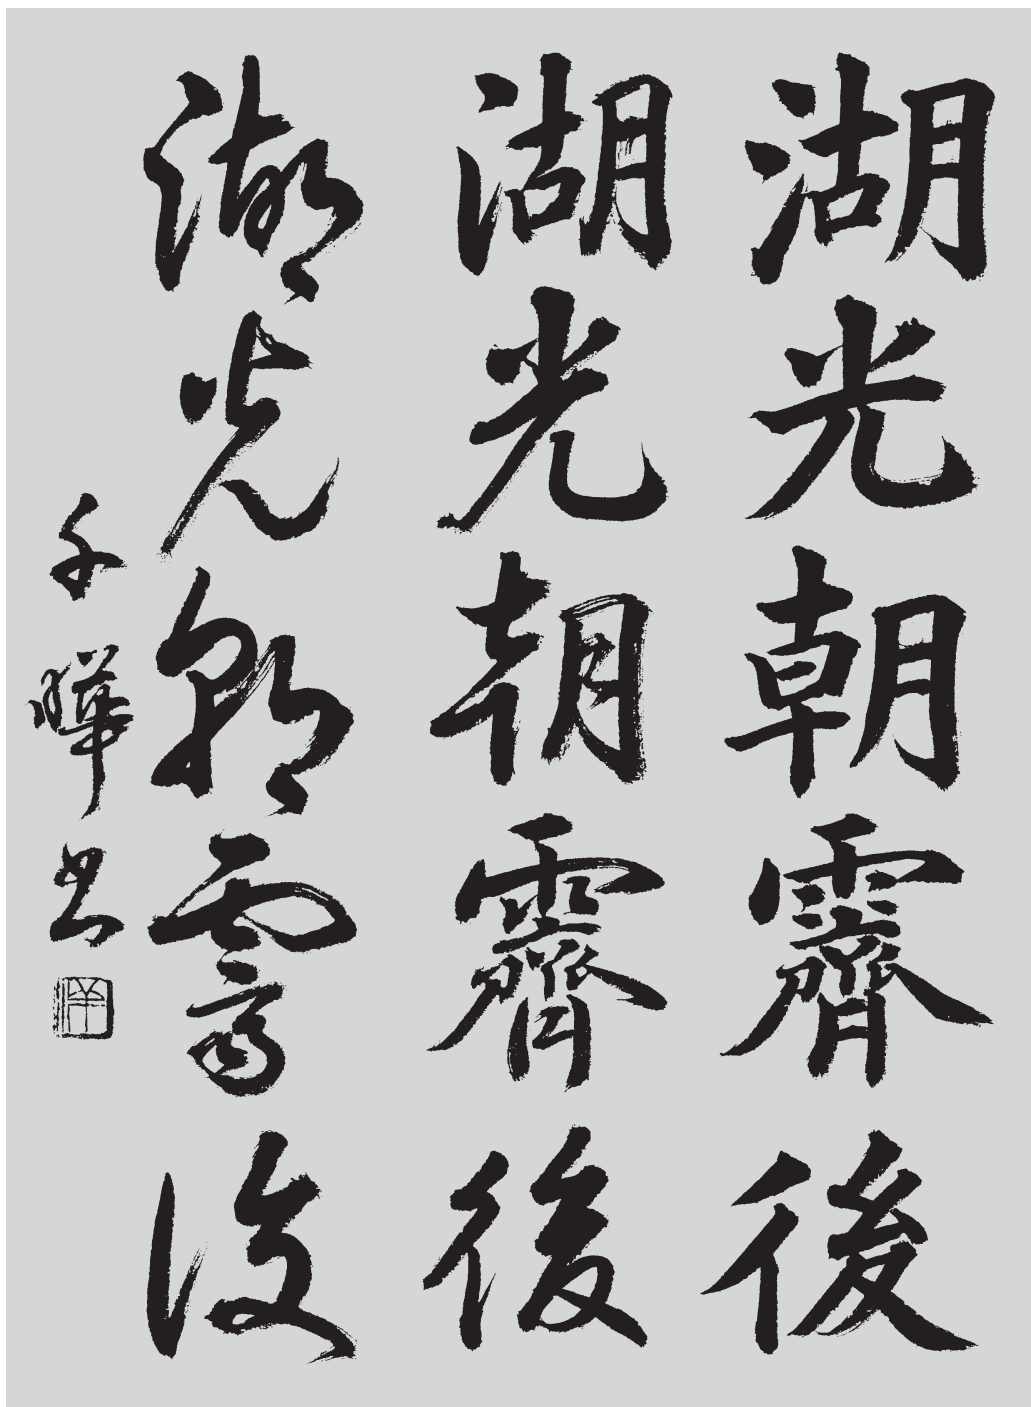 湖光朝霽後
湖光朝霽後
湖光朝霽後
千曄書